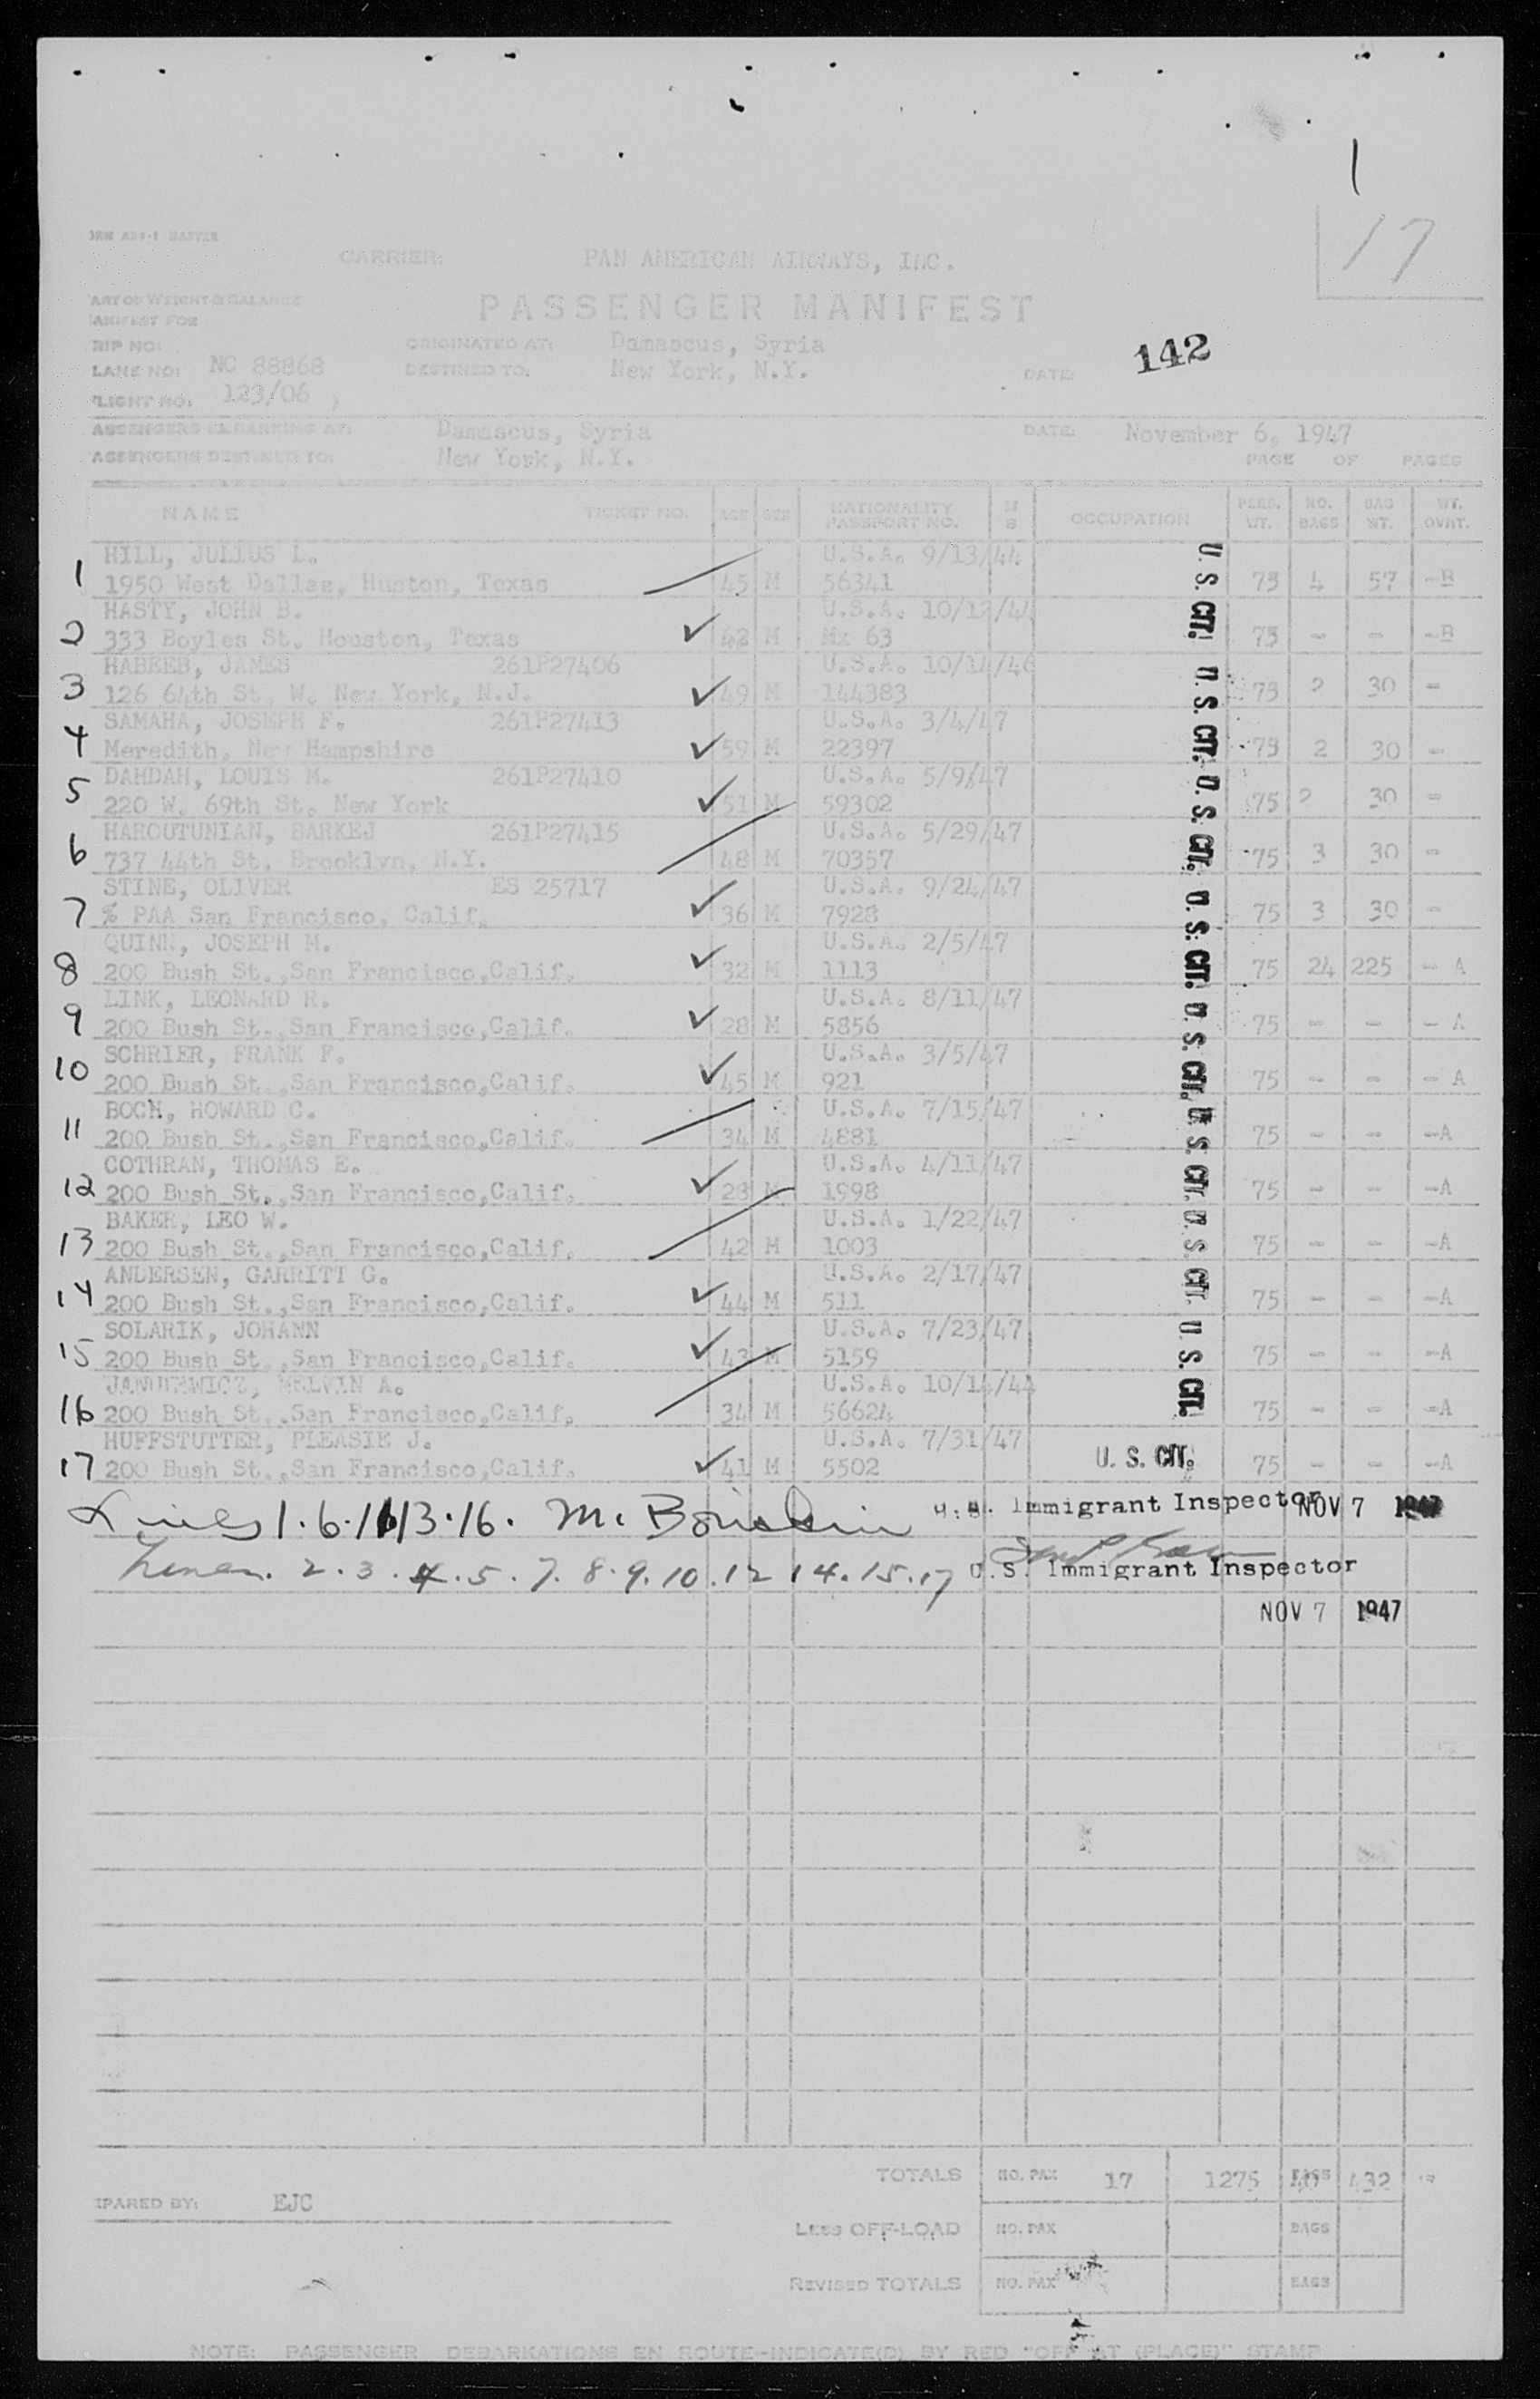 1
17
CARRIER: PAN AMERICAN AIRWAYS, INC.
ART OF WEIGHT & BALANCE
PASSENGER MANIFEST
ANIFEST FOR
RIP NO: ORIGINATED AT: Damascus, Syria
142
LANE NO: NC 88868 DESTINED TO: New York, N.Y. DATE:
LIGHT NO. 123/06
ASSENGERS EMBARKING AT: Damascus, Syria DATE: November 6, 1947
ASSENGERS DESTINED TO: New York, N.Y. PAGE OF PAGES
NAME TICKET NO. AGE SEX NATIONALITY PASSPORT NO. M S OCCUPATION PERS. WT. NO. BAGS BAG WT. WT. OVRT.
HILL, JULIUS L. U.S.A. 9/13/44
1 1950 West Dallas, Huston, Texas 45 M 56341 U. S. CIT. 75 4 57 -B
HASTY, JOHN B. U.S.A. 10/12/4
2 333 Boyles St. Houston, Texas ✓ 42 M Mx 63 75 - - -B
HABEEB, JAMES 261P27406 U.S.A. 10/14/46
3 126 64th St. W. New York, N.J. ✓ 49 M 144383 U. S. CIT. 75 2 30 -
SAMAHA, JOSEPH F. 261P27413 U.S.A. 3/4/47
4 Meredith, New Hampshire ✓ 59 M 22397 75 2 30 -
DAHDAH, LOUIS M. 261P27410 U.S.A. 5/9/47
5 220 W. 69th St. New York ✓ 51 M 59302 U. S. CIT. 75 2 30 -
HAROUTUNIAN, SARKEJ 261P27415 U.S.A. 5/29/47
6 737 44th St. Brooklyn, N.Y. 48 M 70357 75 3 30 -
STINE, OLIVER ES 25717 U.S.A. 9/24/47
7 % PAA San Francisco, Calif. ✓ 36 M 7928 U. S. CIT. 75 3 30 -
QUINN, JOSEPH M. U.S.A. 2/5/47
8 200 Bush St.,San Francisco,Calif. ✓ 32 M 1113 75 24 225 - A
LINK, LEONARD R. U.S.A. 8/11/47
9 200 Bush St.,San Francisco,Calif. ✓ 28 M 5856 U. S. CIT. 75 - - - A
SCHRIER, FRANK F. U.S.A. 3/5/47
10 200 Bush St.,San Francisco,Calif. ✓ 45 M 921 75 - - - A
BOCH, HOWARD C. U.S.A. 7/15/47
11 200 Bush St.,San Francisco,Calif. 34 M 4881 U. S. CIT. 75 - - -A
COTHRAN, THOMAS E. U.S.A. 4/11/47
12 200 Bush St.,San Francisco,Calif. ✓ 28 M 1998 75 - - -A
BAKER, LEO W. U.S.A. 1/22/47
13 200 Bush St.,San Francisco,Calif. 42 M 1003 U. S. CIT. 75 - - -A
ANDERSEN, GARRITT G. U.S.A. 2/17/47
14 200 Bush St.,San Francisco,Calif. ✓ 44 M 511 75 - - -A
SOLARIK, JOHANN U.S.A. 7/23/47
15 200 Bush St.,San Francisco,Calif. ✓ 43 M 5159 U. S. CIT. 75 - - -A
MELVIN A. U.S.A. 10/14/44
16 200 Bush St.,San Francisco,Calif. 34 M 56624 75 - - -A
HUFFSTUTTER, PLEASIE J. U.S.A. 7/31/47
17 200 Bush St.,San Francisco,Calif. ✓ 41 M 5502 U. S. CIT. 75 - - -A
Lines 1.6.11 13.16. M. U.S. Immigrant Inspector NOV 7 1947
Lines. 2.3.4.5.7.8.9.10.12 14.15.17 U.S. Immigrant Inspector
NOV 7 1947
TOTALS NO. PAX 17 1275 BAGS 40 432 -
EPARED BY: EJC
LESS OFF-LOAD NO. PAX BAGS
REVISED TOTALS NO. PAX BAGS
NOTE: PASSENGER DEBARKATIONS EN ROUTE-INDICATE(D) BY RED "OFF AT (PLACE)" STAMP